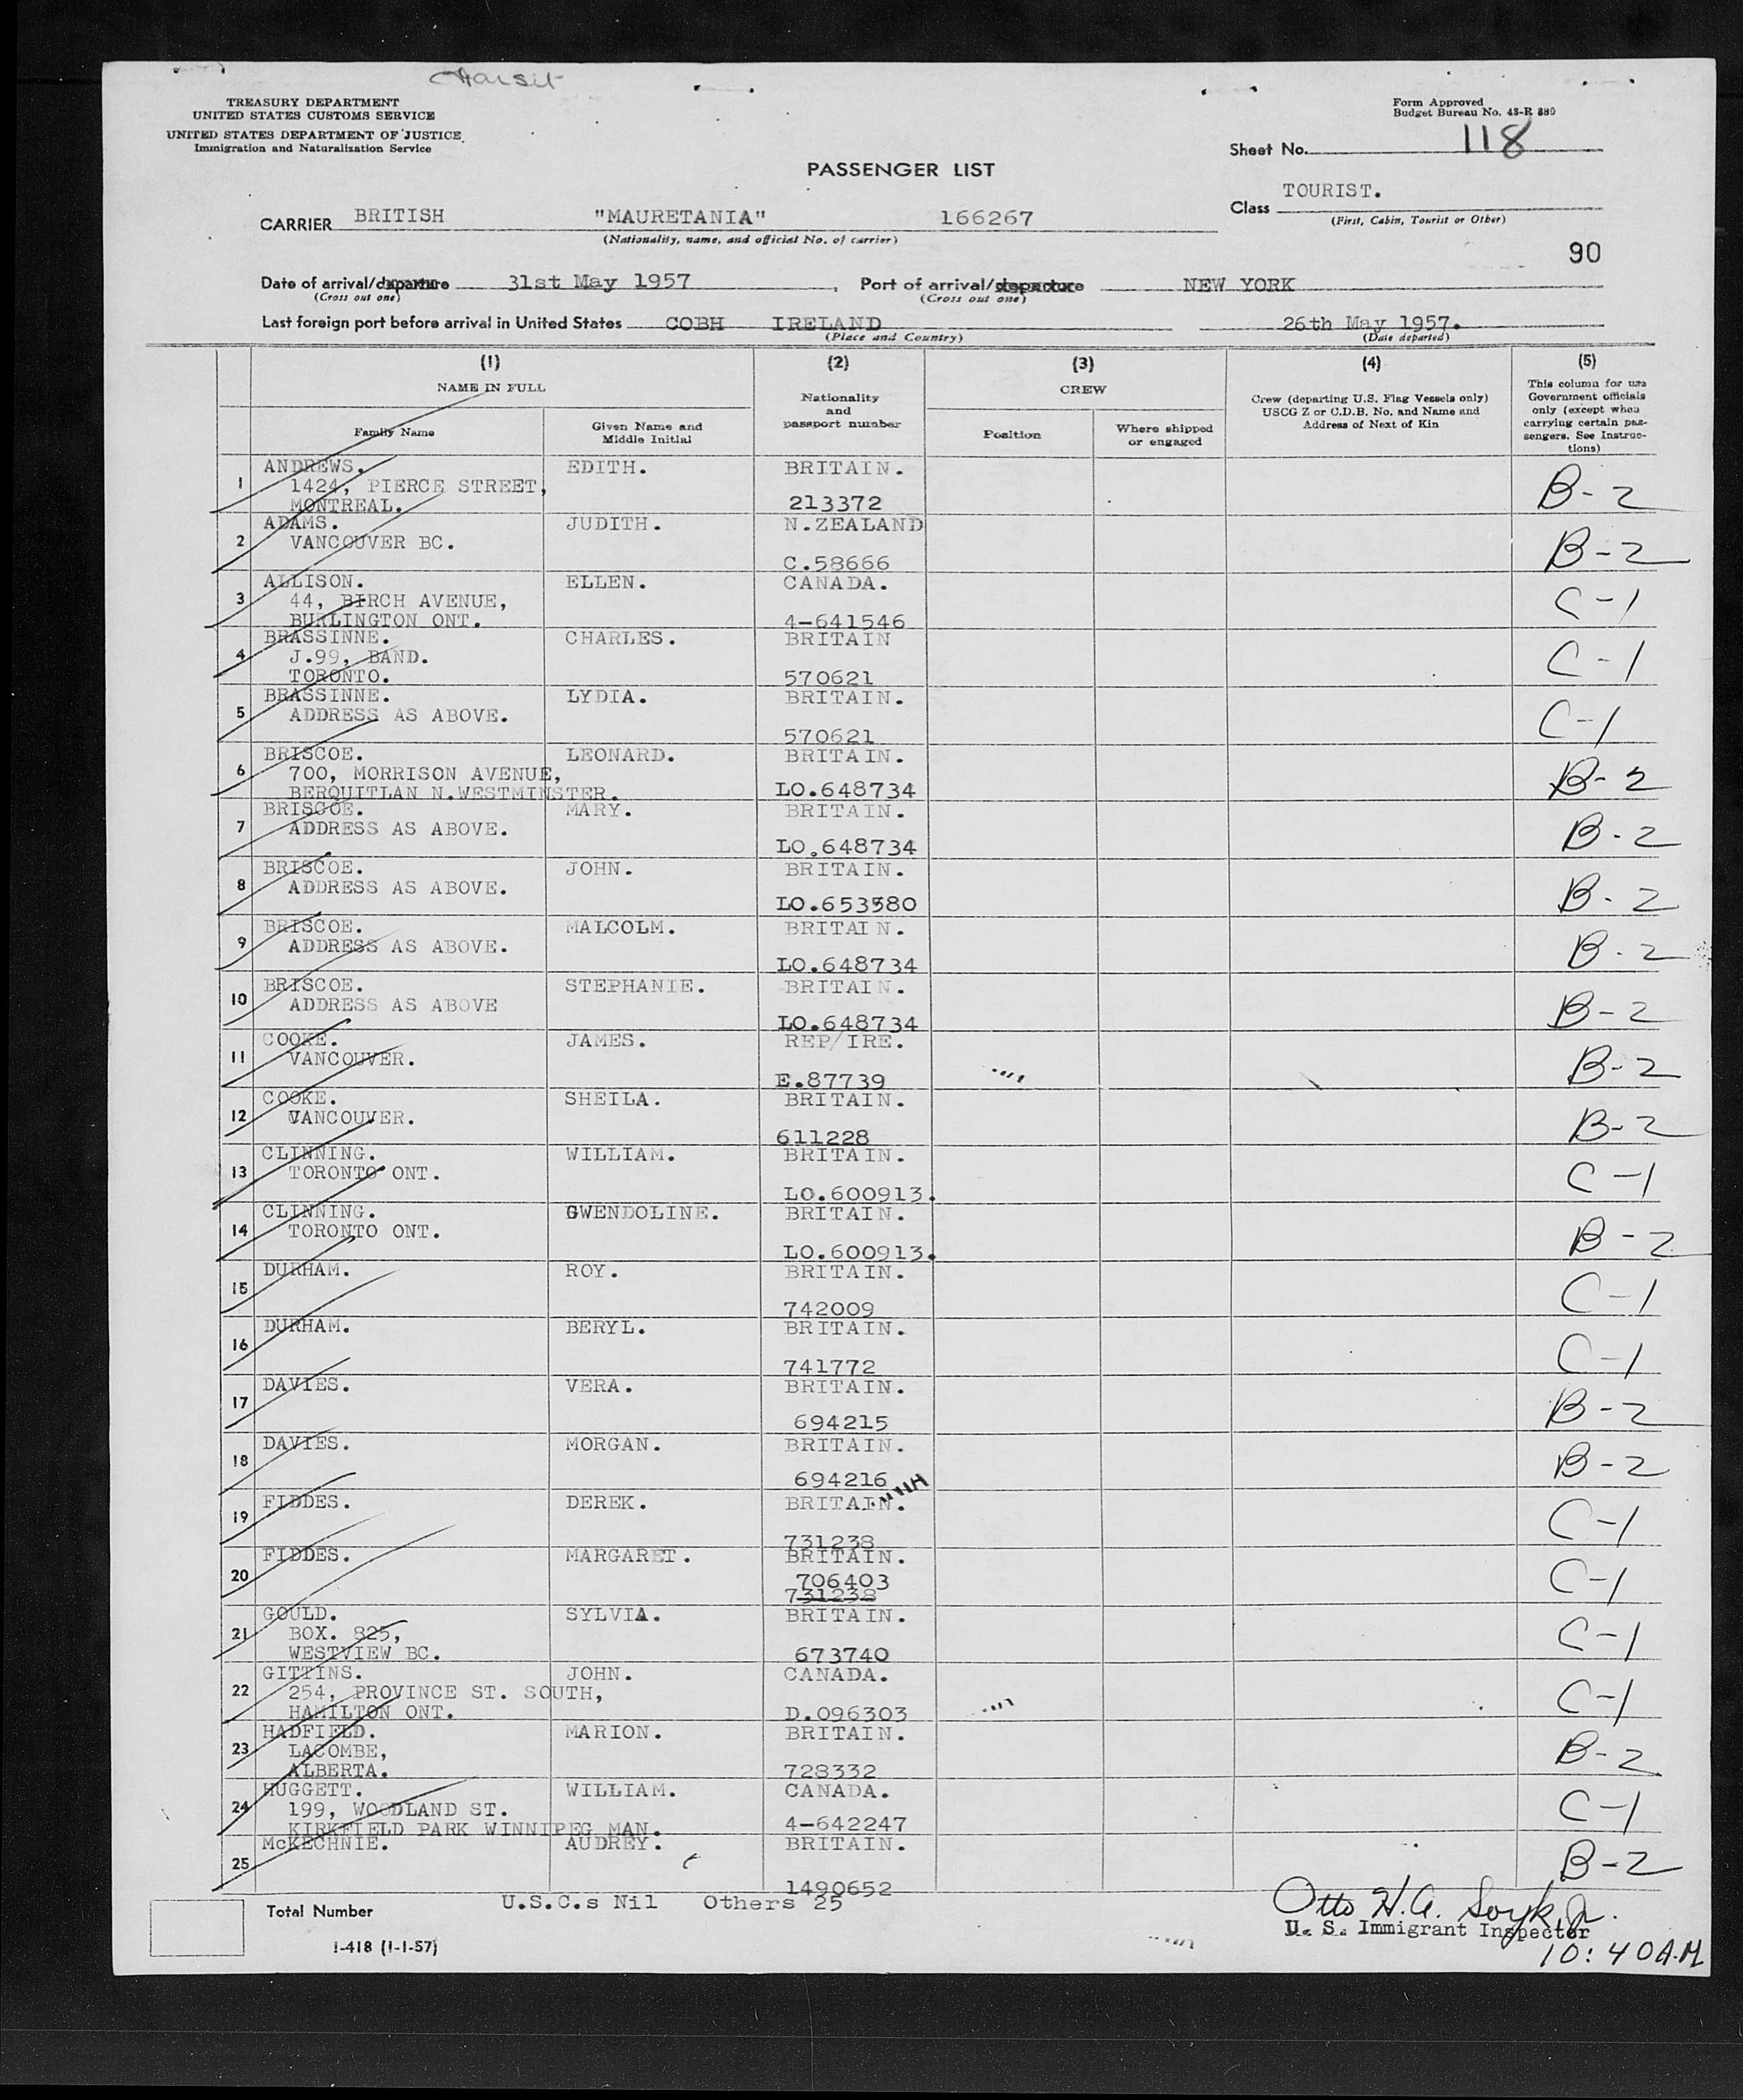 Transit
TREASURY DEPARTMENT
UNITED STATES CUSTOMS SERVICE
UNITED STATES DEPARTMENT OF JUSTICE
Immigration and Naturalization Service
Form Approved
Budget Bureau No. 43-R 880
Sheet No. 118
PASSENGER LIST
Class TOURIST.
(First, Cabin, Tourist or Other)
CARRIER BRITISH "MAURETANIA" 166267
(Nationality, name, and official No. of carrier)
90
Date of arrival/departure 31st May 1957, Port of arrival/departure NEW YORK
(Cross out one) (Cross out one)
Last foreign port before arrival in United States COBH IRELAND 26th May 1957.
(Place and Country) (Date departed)
(1) (2) (3) (4) (5)
NAME IN FULL
Family Name
Given Name and Middle Initial
Nationality and passport number
CREW
Position
Where shipped or engaged
Crew (departing U.S. Flag Vessels only)
USCG Z or C.D.B. No. and Name and
Address of Next of Kin
This column for use
Government officials
only (except when
carrying certain pas-
sengers. See Instruc-
tions)
1 ANDREWS. EDITH. BRITAIN.
1424, PIERCE STREET,
MONTREAL. 213372 B-2
2 ADAMS. JUDITH. N.ZEALAND
VANCOUVER BC.
C.58666 B-2
3 ALLISON. ELLEN. CANADA.
44, BIRCH AVENUE,
BURLINGTON ONT. 4-641546 C-1
4 BRASSINNE. CHARLES. BRITAIN
J.99, BAND.
TORONTO. 570621 C-1
5 BRASSINNE. LYDIA. BRITAIN.
ADDRESS AS ABOVE.
570621 C-1
6 BRISCOE. LEONARD. BRITAIN.
700, MORRISON AVENUE,
BERQUITLAN N.WESTMINSTER. LO.648734 B-2
7 BRISCOE. MARY. BRITAIN.
ADDRESS AS ABOVE.
LO.648734 B-2
8 BRISCOE. JOHN. BRITAIN.
ADDRESS AS ABOVE.
LO.653580 B-2
9 BRISCOE. MALCOLM. BRITAIN.
ADDRESS AS ABOVE.
LO.648734 B-2
10 BRISCOE. STEPHANIE. BRITAIN.
ADDRESS AS ABOVE
LO.648734 B-2
11 COOKE. JAMES. REP/IRE.
VANCOUVER.
E.87739 B-2
12 COOKE. SHEILA. BRITAIN.
VANCOUVER.
611228 B-2
13 CLINNING. WILLIAM. BRITAIN.
TORONTO ONT.
LO.600913. C-1
14 CLINNING. GWENDOLINE. BRITAIN.
TORONTO ONT.
LO.600913. B-2
15 DURHAM. ROY. BRITAIN.
742009 C-1
16 DURHAM. BERYL. BRITAIN.
741772 C-1
17 DAVIES. VERA. BRITAIN.
694215 B-2
18 DAVIES. MORGAN. BRITAIN.
694216 B-2
19 FIDDES. DEREK. BRITAIN.
731238 C-1
20 FIDDES. MARGARET. BRITAIN.
706403
731238 C-1
21 GOULD. SYLVIA. BRITAIN.
BOX. 825,
WESTVIEW BC. 673740 C-1
22 GITTINS. JOHN. CANADA.
254, PROVINCE ST. SOUTH,
HAMILTON ONT. D.096303 C-1
23 HADFIELD. MARION. BRITAIN.
LACOMBE,
ALBERTA. 728332 B-2
24 HUGGETT. WILLIAM. CANADA.
199, WOODLAND ST.
KIRKFIELD PARK WINNIPEG MAN. 4-642247 C-1
25 McKECHNIE. AUDREY. BRITAIN.
1490652 B-2
Total Number U.S.C.s Nil Others 25
Otto H.A. Soyk, Jr.
U. S. Immigrant Inspector
I-418 (1-1-57)
10:40 A.M